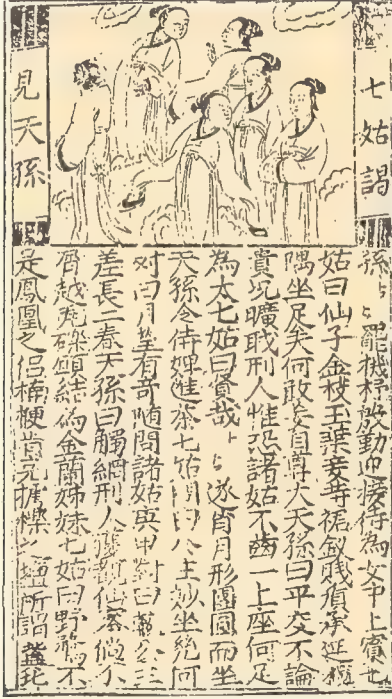 七姑謁
見天孫
孫罷機杼殷動迎接待為女中上賓七
姑曰仙子金枝玉葉妾等裙釵賤質承延
隅坐足矣何敢妄自尊大天孫曰平交不論
貴况曠職刑人惟恐諸姑不齒一上座何足
為太七姑曰賓哉〻〻遂肖月形團圓而坐
天孫令侍婢進茶七姑問曰公主妙坐幾何
对曰月望有奇随問諸姑庚甲對曰
差長二春天孫曰觸網刑人獲覩仙客倘不
屑越瓦礫願結為金蘭姊妹七姑曰野鶩不
是鳳凰之侣楠梗肯充樗櫟所謂